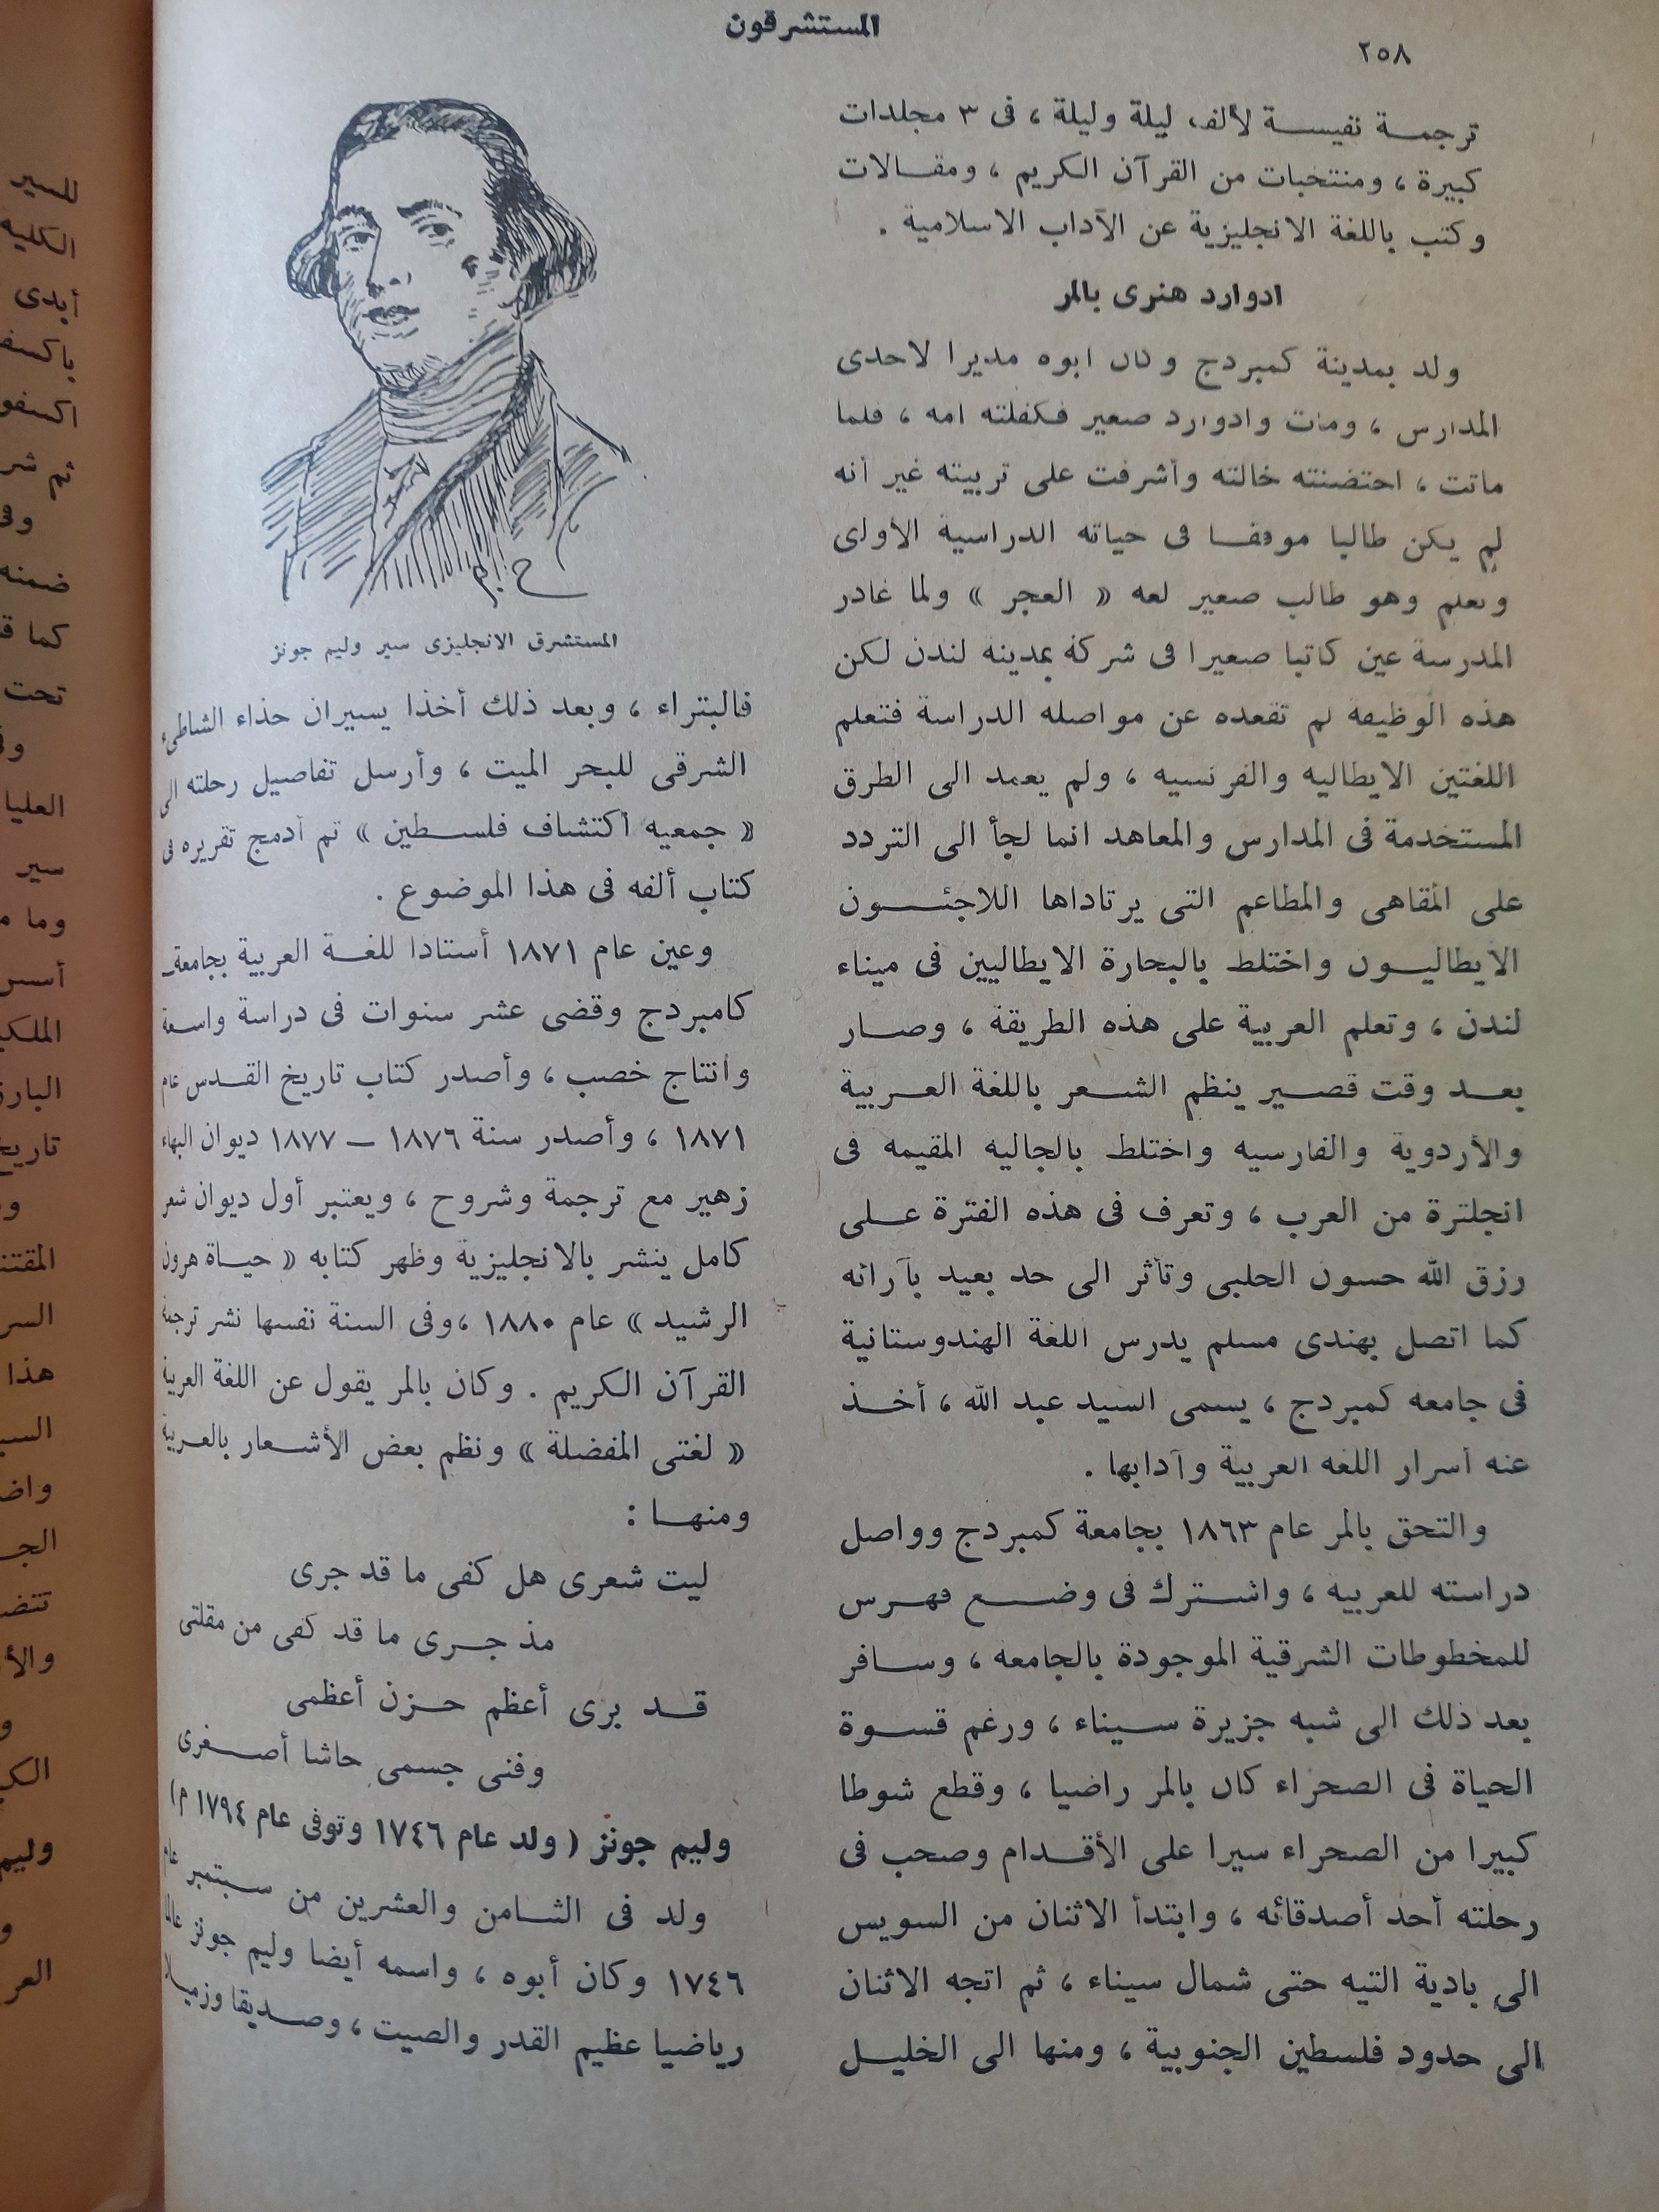 المستشرقون
٢٥٨
ترجمة نفيسة لألف ليلة وليلة ، فى ٣ مجلدات
كبيرة ، ومنتخبات من القرآن الكريم ، ومقالات
وكتب باللغة الانجليزية عن الآداب الاسلامية .
ادوارد هنرى بالمر
ولد بمدينة كمبردج وكان ابوه مديرا لاحدى
المدارس ، ومات وادوارد صغير فكفلته امه ، فلما
ماتت ، احتضنته خالته وأشرفت على تربيته غير أنه
لم يكن طالبا موفقا فى حياته الدراسية الأولى
وتعلم وهو طالب صغير لغة « الغجر » ولما غادر
المدرسة عين كاتبا صغيرا فى شركة بمدينة لندن لكن
هذه الوظيفة لم تقعده عن مواصلة الدراسة فتعلم
اللغتين الايطالية والفرنسية ، ولم يعمد الى الطرق
المستخدمة فى المدارس والمعاهد انما لجأ الى التردد
على المقاهى والمطاعم التى يرتاداها اللاجئون
الايطاليون واختلط بالبحارة الايطاليين فى ميناء
لندن ، وتعلم العربية على هذه الطريقة ، وصار
بعد وقت قصير ينظم الشعر باللغة العربية
والأردوية والفارسية واختلط بالجالية المقيمة فى
انجلترة من العرب ، وتعرف فى هذه الفترة على
رزق الله حسون الحلبى وتأثر الى حد بعيد بآرائه
كما اتصل بهندى مسلم يدرس اللغة الهندوستانية
فى جامعة كمبردج ، يسمى السيد عبد الله ، أخذ
عنه أسرار اللغة العربية وآدابها .
والتحق بالمر عام ١٨٦٣ بجامعة كمبردج وواصل
دراسته للعربية ، واشترك فى وضع فهرس
للمخطوطات الشرقية الموجودة بالجامعة ، وسافر
بعد ذلك الى شبه جزيرة سيناء ، ورغم قسوة
الحياة فى الصحراء كان بالمر راضيا ، وقطع شوطا
كبيرا من الصحراء سيرا على الأقدام وصحب فى
رحلته أحد أصدقائه ، وابتدأ الاثنان من السويس
الى بادية التيه حتى شمال سيناء ، ثم اتجه الاثنان
الى حدود فلسطين الجنوبية ، ومنها الى الخليل
المستشرق الانجليزى سير وليم جونز
فالبتراء ، وبعد ذلك أخذا يسيران حذاء الشاطىء
الشرقى للبحر الميت ، وأرسل تفاصيل رحلته الى
« جمعية اكتشاف فلسطين » ثم أدمج تقريره فى
كتاب ألفه فى هذا الموضوع .
وعين عام ١٨٧١ أستاذا للغة العربية بجامعة
كامبردج وقضى عشر سنوات فى دراسة واسعة
وانتاج خصب ، وأصدر كتاب تاريخ القدس عام
١٨٧١ ، وأصدر سنة ١٨٧٦ – ١٨٧٧ ديوان البهاء
زهير مع ترجمة وشروح ، ويعتبر أول ديوان شعر
كامل ينشر بالانجليزية وظهر كتابه « حياة هرون
الرشيد » عام ١٨٨٠ ، وفى السنة نفسها نشر ترجمة
القرآن الكريم . وكان بالمر يقول عن اللغة العربية
« لغتى المفضلة » ونظم بعض الأشعار بالعربية
ومنها :
ليت شعرى هل كفى ما قد جرى
مذ جرى ما قد كفى من مقلتى
قد برى أعظم حزن أعظمى
وفنى جسمى حاشا أصغرى
وليم جونز ( ولد عام ١٧٤٦ وتوفى عام ١٧٩٤ م )
ولد فى الثامن والعشرين من سبتمبر عام
١٧٤٦ وكان أبوه ، واسمه أيضا وليم جونز عالما
رياضيا عظيم القدر والصيت ، وصديقا وزميلا
للسير
الكلية
أيدى
ثم شر
ضمنه
تحت
العليا
سير
هذا